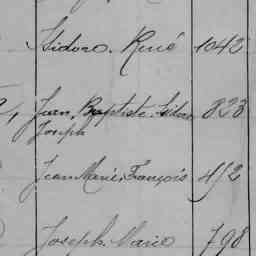 Isidore. René 1042
Jean, Baptiste. Isidore 823
Joseph
Jean Marie, François 412
Joseph. Marie 798